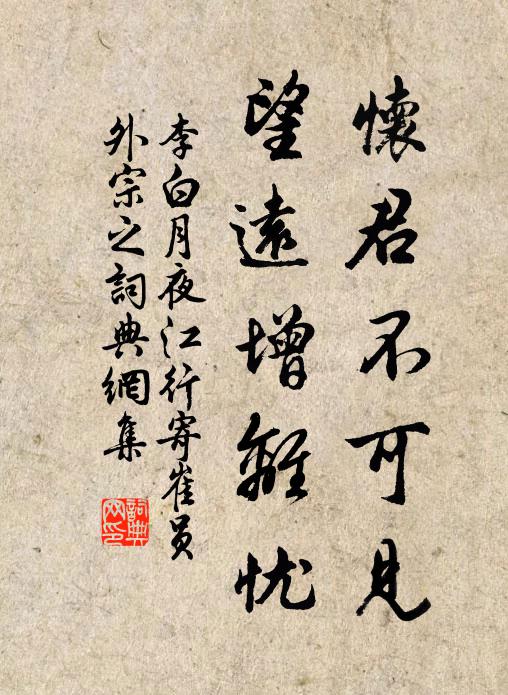 懷君不可見
望遠增離忧
李白月夜江行寄崔员
外宗之詞典網集
詞典
网印